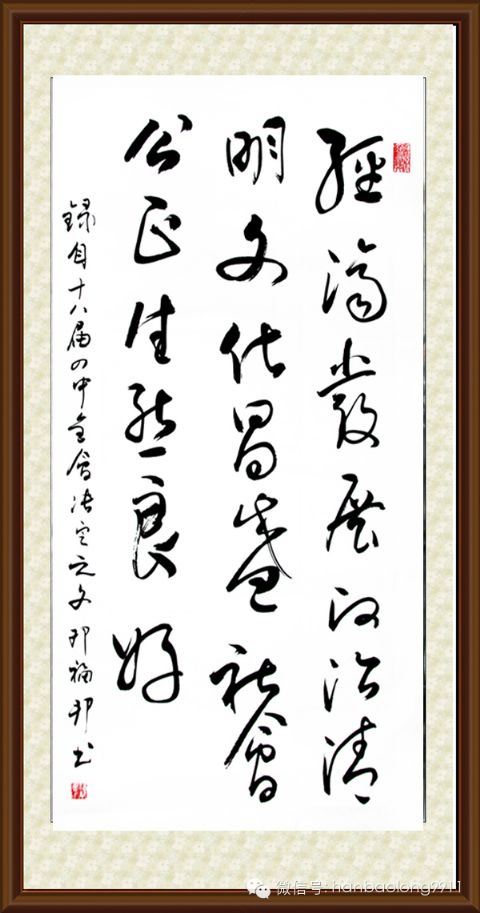 經濟發展政治清
明文化昌盛社會
公正生態良好
錄自十八届四中全會决定之文 福 书
微信号: hanbaolong9911